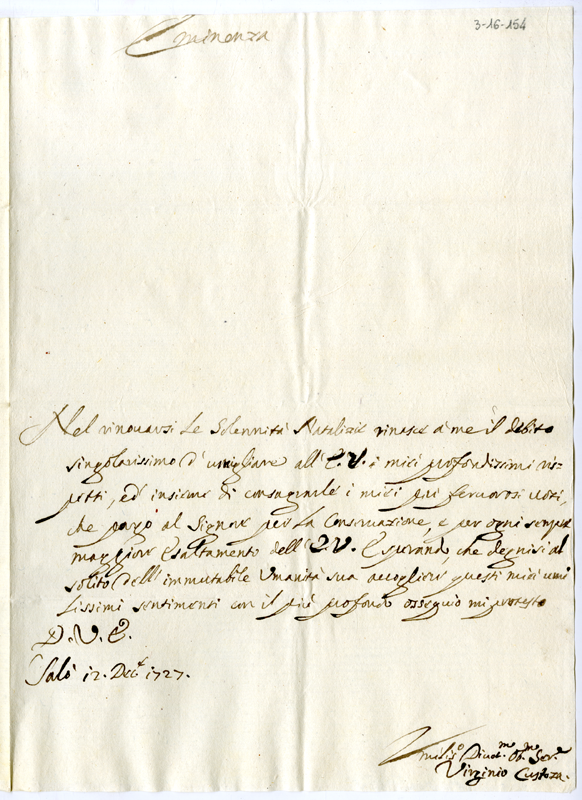 3-16-154
Eminenza
Nel rinouarsi le Solennità Natalizie rinasce à me il debito
singolarissimo d'umigliare all'E.V. i miei profondissimi ris-
petti, ed' insieme di consagrarle i miei piu feruorosi uoti,
che porgo al Signore per la Conseruazione, e per ogni sempre
maggiore Esaltamento dell'E.V. E sperando, che degnisi al
solito dell'immutabile Umanità sua accogliere questi miei umi
lissimi sentimenti con il più profondo ossequio mi protesto
D. V. E.
Salò 12. Dec. 1727.
Umilis.o Diuot.mo Ob.mo Ser.e
Virginio Custoza.